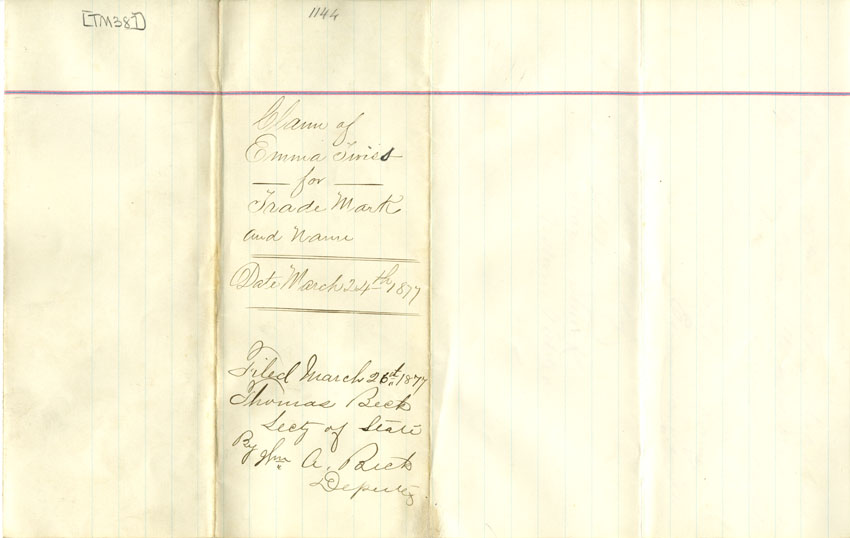 [TM381]
1144
Claim of
Emma Twiss
— for —
Trade Mark
and Name
Date March 24th 1877
Filed March 26th 1877
Thomas Beck
Secty of State
By Wm A. Beck
Deputy.